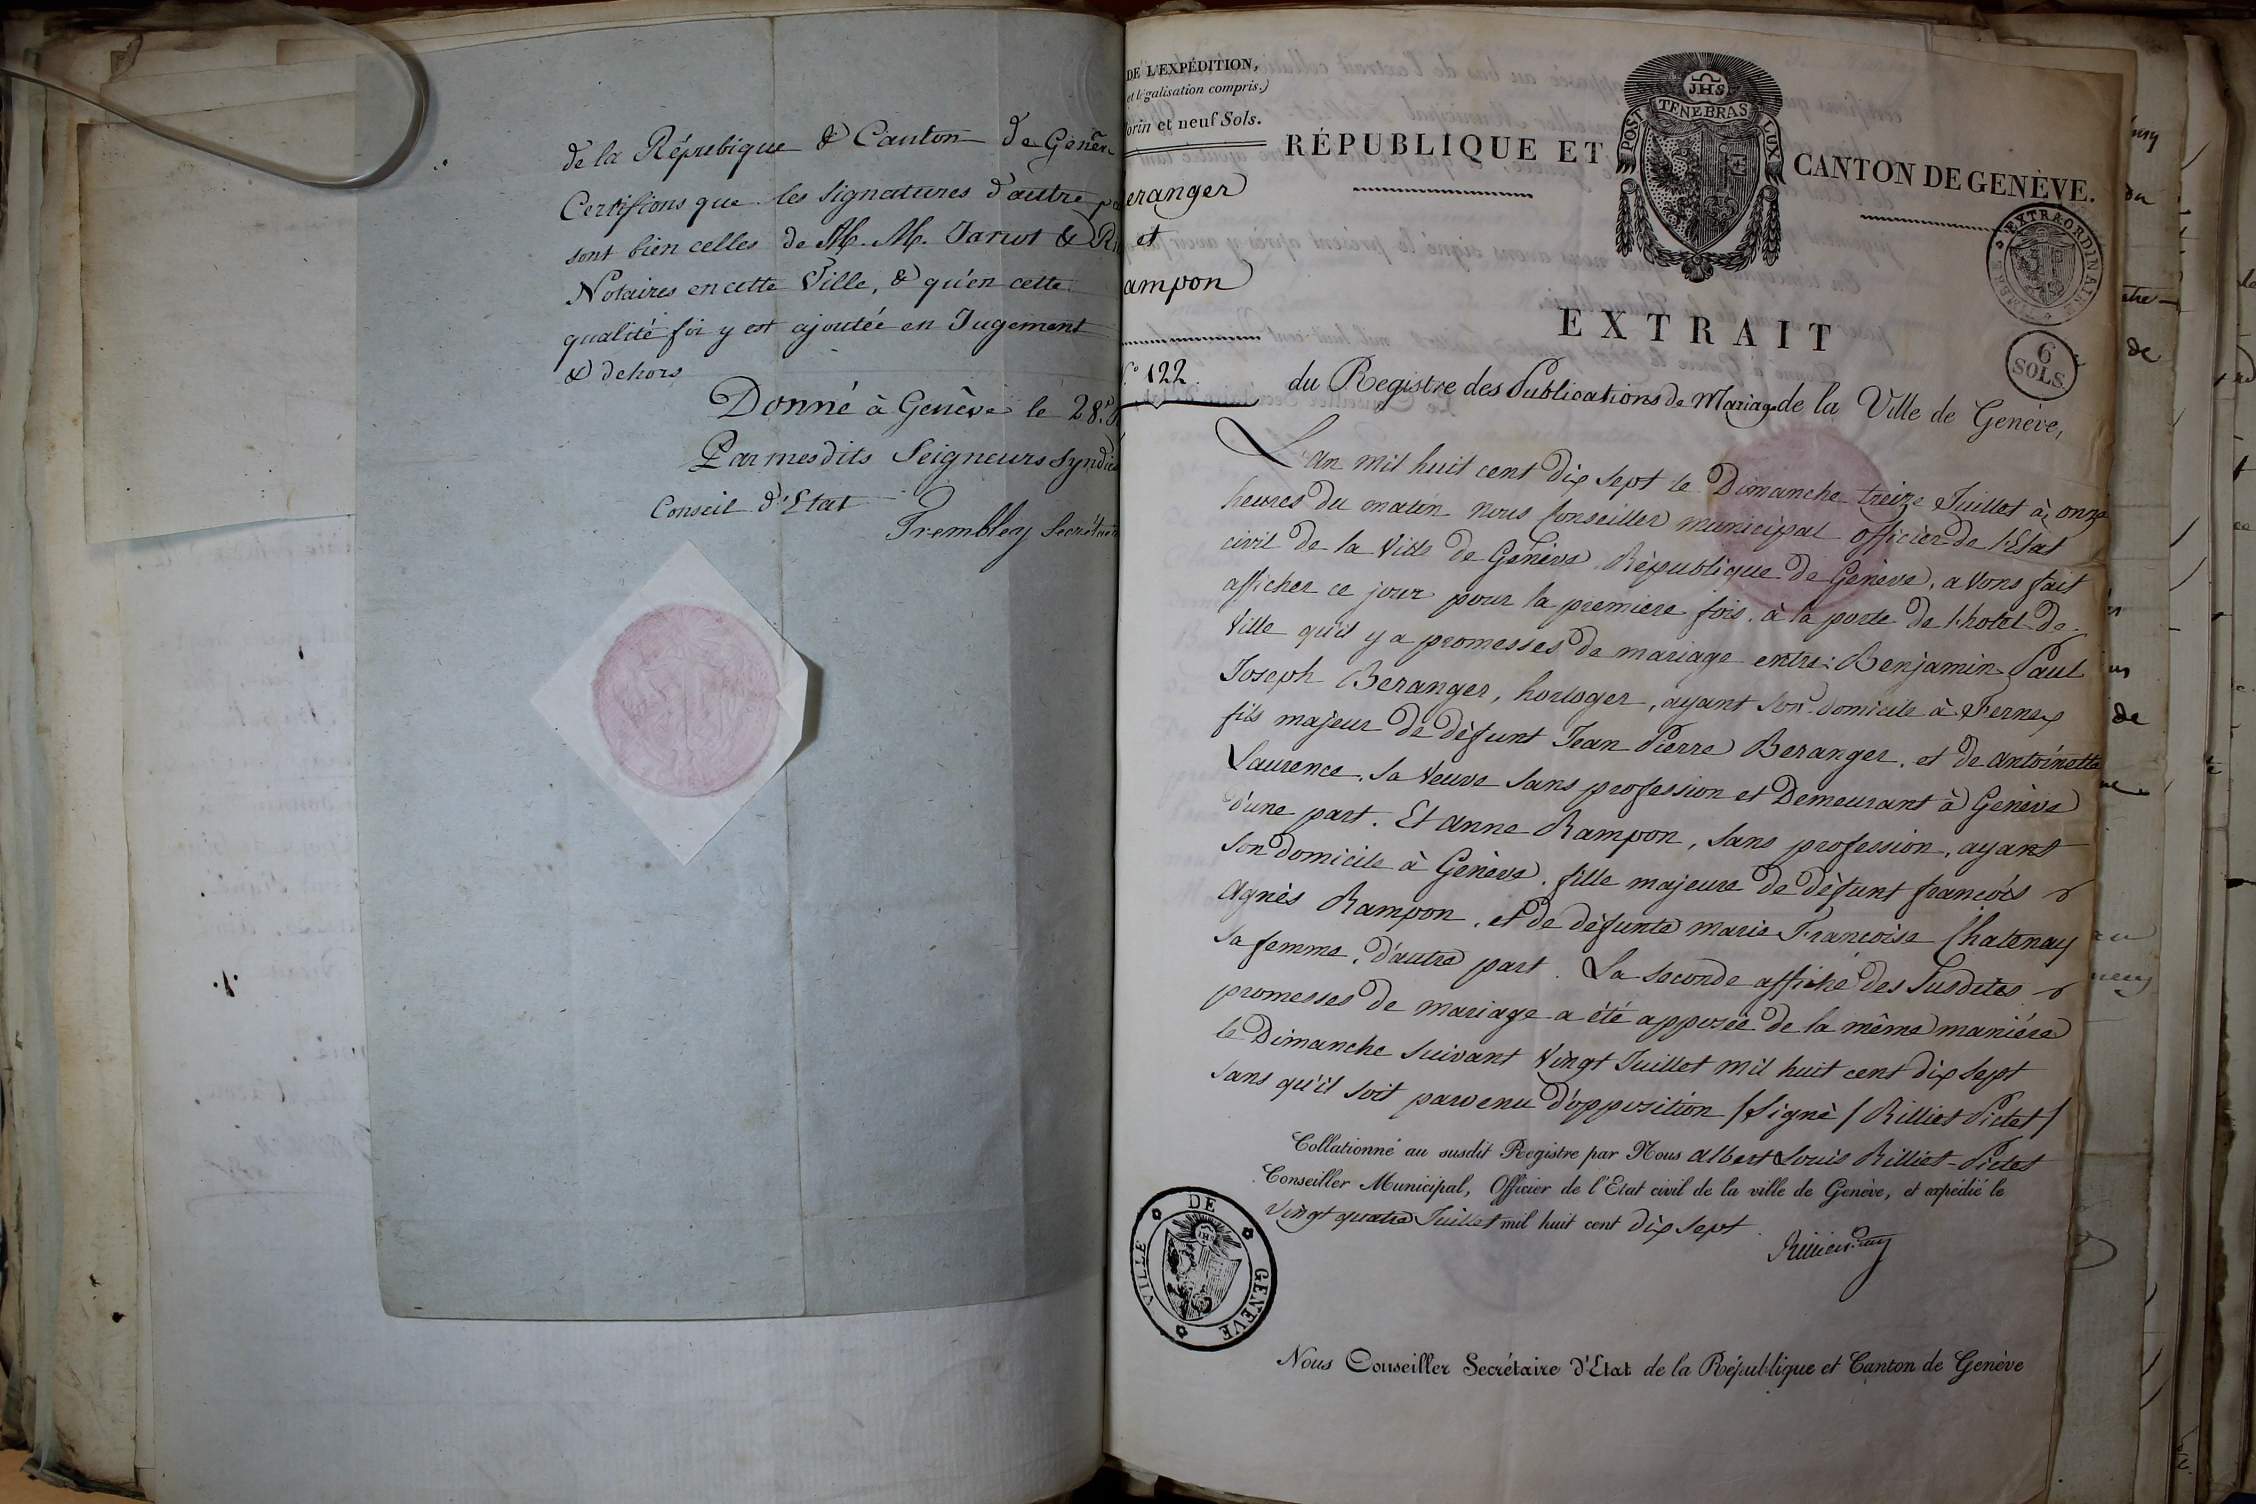 de la République & Canton de Genêv
Certifions que les signatures d'autre pa
sont bien celles de M. M. Janot & Ri
Notaires en cette Ville, & qu'en cette
qualité foi y est ajoutée en Jugement
& dehors
Donné à Genêve le 28.
Par mesdits Seigneurs Syndics
Conseil d'Etat
Trembley Secrétaire
DE L'EXPÉDITION,
et légalisation compris.)
lorin et neuf Sols.
eranger
et
ampon
N.º 122.
JHS
POST TENEBRAS LUX
RÉPUBLIQUE ET CANTON DE GENÈVE.
EXTRAORDINAIRE
6
SOLS.
EXTRAIT
du Registre des Publications de Mariage de la Ville de Genève,
L'an mil huit cent dix sept le Dimanche treize Juillet à onze
heures du matin nous Conseiller municipal officier de l'Etat
civil de la Ville de Genève République de Genève, avons fait
afficher ce jour pour la premiere fois, à la porte de l'hotel de
Ville qu'il y a promesses de mariage entre: Benjamin Paul
Joseph Beranger, horloger, ayant son domicile à Fernex
fils majeur de défunt Jean Pierre Beranger, et de antoinette
Laurence, sa Veuve sans profession et Demeurant à Genève
d'une part. Et anne Rampon, sans profession, ayant
son domicile à Genève, fille majeure de défunt françois
agnès Rampon, et de défunte marie Françoise Chatenay
sa femme, d'autre part. La seconde affiche des susdites
promesses de mariage a été apposée de la même manière
le Dimanche suivant Vingt Juillet mil huit cent dix sept
sans qu'il soit parvenu d'opposition / signé / Rilliet Pictet /
Collationné au susdit Registre par Nous albert Louis Rilliet-Pictet
Conseiller Municipal, Officier de l'Etat civil de la ville de Genève, et expédié le
Vingt quatre Juillet mil huit cent dix sept
VILLE DE GENEVE
Nous Conseiller Secrétaire d'Etat de la République et Canton de Genève